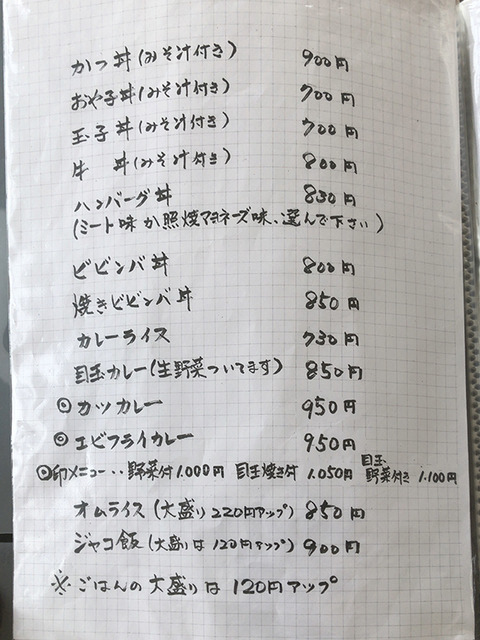 かつ丼(みそ汁付き) 900円
おや子丼(みそ汁付き) 700円
玉子丼(みそ汁付き) 700円
牛 丼(みそ汁付き) 800円
ハンバーグ丼 830円
(ミート味か照焼マヨネーズ味、選んで下さい)
ビビンバ丼 800円
焼きビビンバ丼 850円
カレーライス 730円
目玉カレー(生野菜ついてます) 850円
◎カツカレー 950円
◎エビフライカレー 950円
◎印メニュー・・野菜付1.000円 目玉焼き付 1.050円 目玉野菜付き 1.100円
オムライス(大盛り220円アップ) 850円
ジャコ飯(大盛りは120円アップ) 900円
※ごはんの大盛りは120円アップ